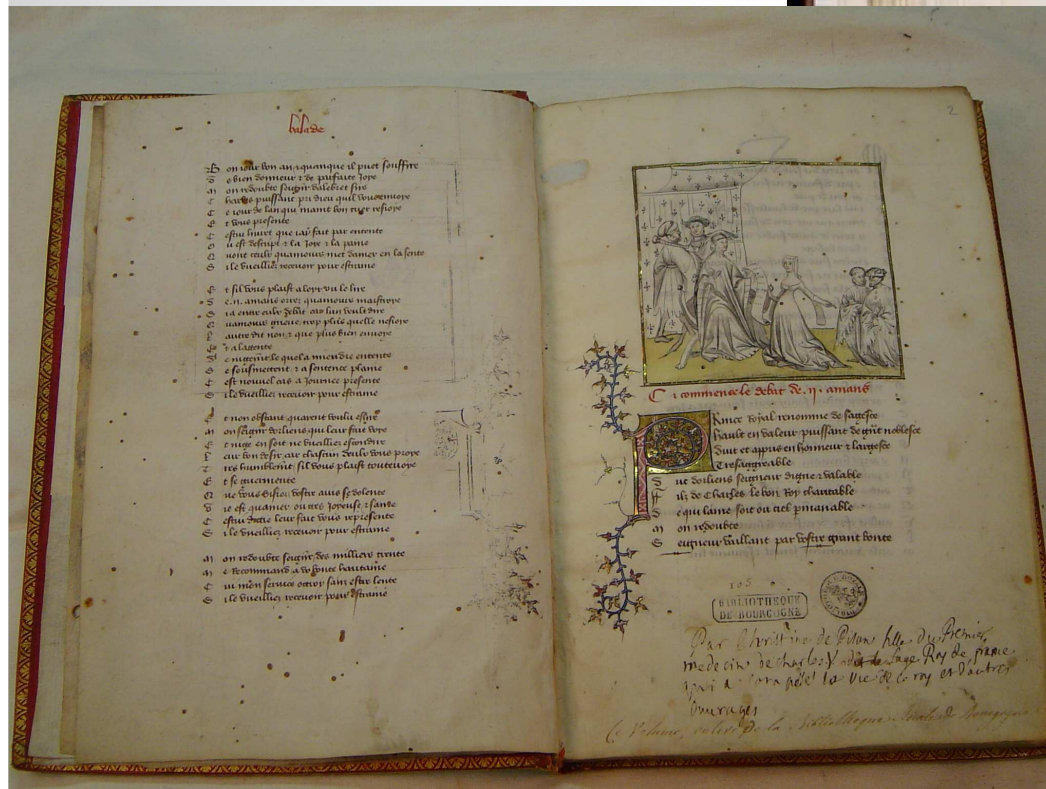 balade
Bon iour bon an & quanque il puet souffire
De bien donneur & de parfaite Joye
Mon redoubte seignr dalebret sire
Charles puissant pri dieu quil vous envoye
Ce iour de lan qui maint bon cuer resioye
Et vous presente
Cestui livret que iay fait par entente
Ou est descript & la Joye & la paine
Quont ceulx quamours met damer en la sente
Sile vueilliez recevoir pour estraine
Et sil vous plaist a loyr ou le lire
De .ii. amans orrez quamours maistroye
Ja entre eulx debat car lun veult dire
Quamours grieve trop plus quelle nesioye
Lautre dit non & que plus bien envoye
e sousmettent & a sentence plaine
Cest nouvel cas a Journee presente
Sile vueilliez recevoir pour estraine
Et non obstant quarent voulu eslire
Monseignr dorliens qui leur fait voye
Et iuge en soit ne vueilliez escondire
Leur bon desir car chascun deulx vous proye
Tres humblemt sil vous plaist toutevoye
Et se guermente
Que vous disiez vostre avis se dolente
Vie est quamer ou tres Joyeuse & sante
Cestui dictie leur fait vous represente
Sile vueilliez recevoir pour estraine
Mon redoubte seignr des milliers trente
Me Recommand a vo bonte haultaine
Cui mon service ottroy sans estre lente
Sile vueilliez recevoir pour estraine
2
Ci commence le debat de .ii. amans
Prince royal renomme de sagesce
hault en valeur puissant de grant noblesce
Duit et appris en honneur & largesce
Tresaggreable
Duc dorliens seigneur digne & valable
Filz de Charles le bon Roy charitable
De qui lame soit ou ciel pmanable
Mon redoubte
Seigneur vaillant par vostre grant bonte
105
BIBLIOTHEQUE
DE BOURGOGNE
Par Christine de Pisan fille du Premier
medecin de charles V dit le Sage Roy de france
qui a composé la vie de ce roy et d'autres
ouvrages
Ce Volume, enlevé de la Bibliotheque Roiale de Bourgogne